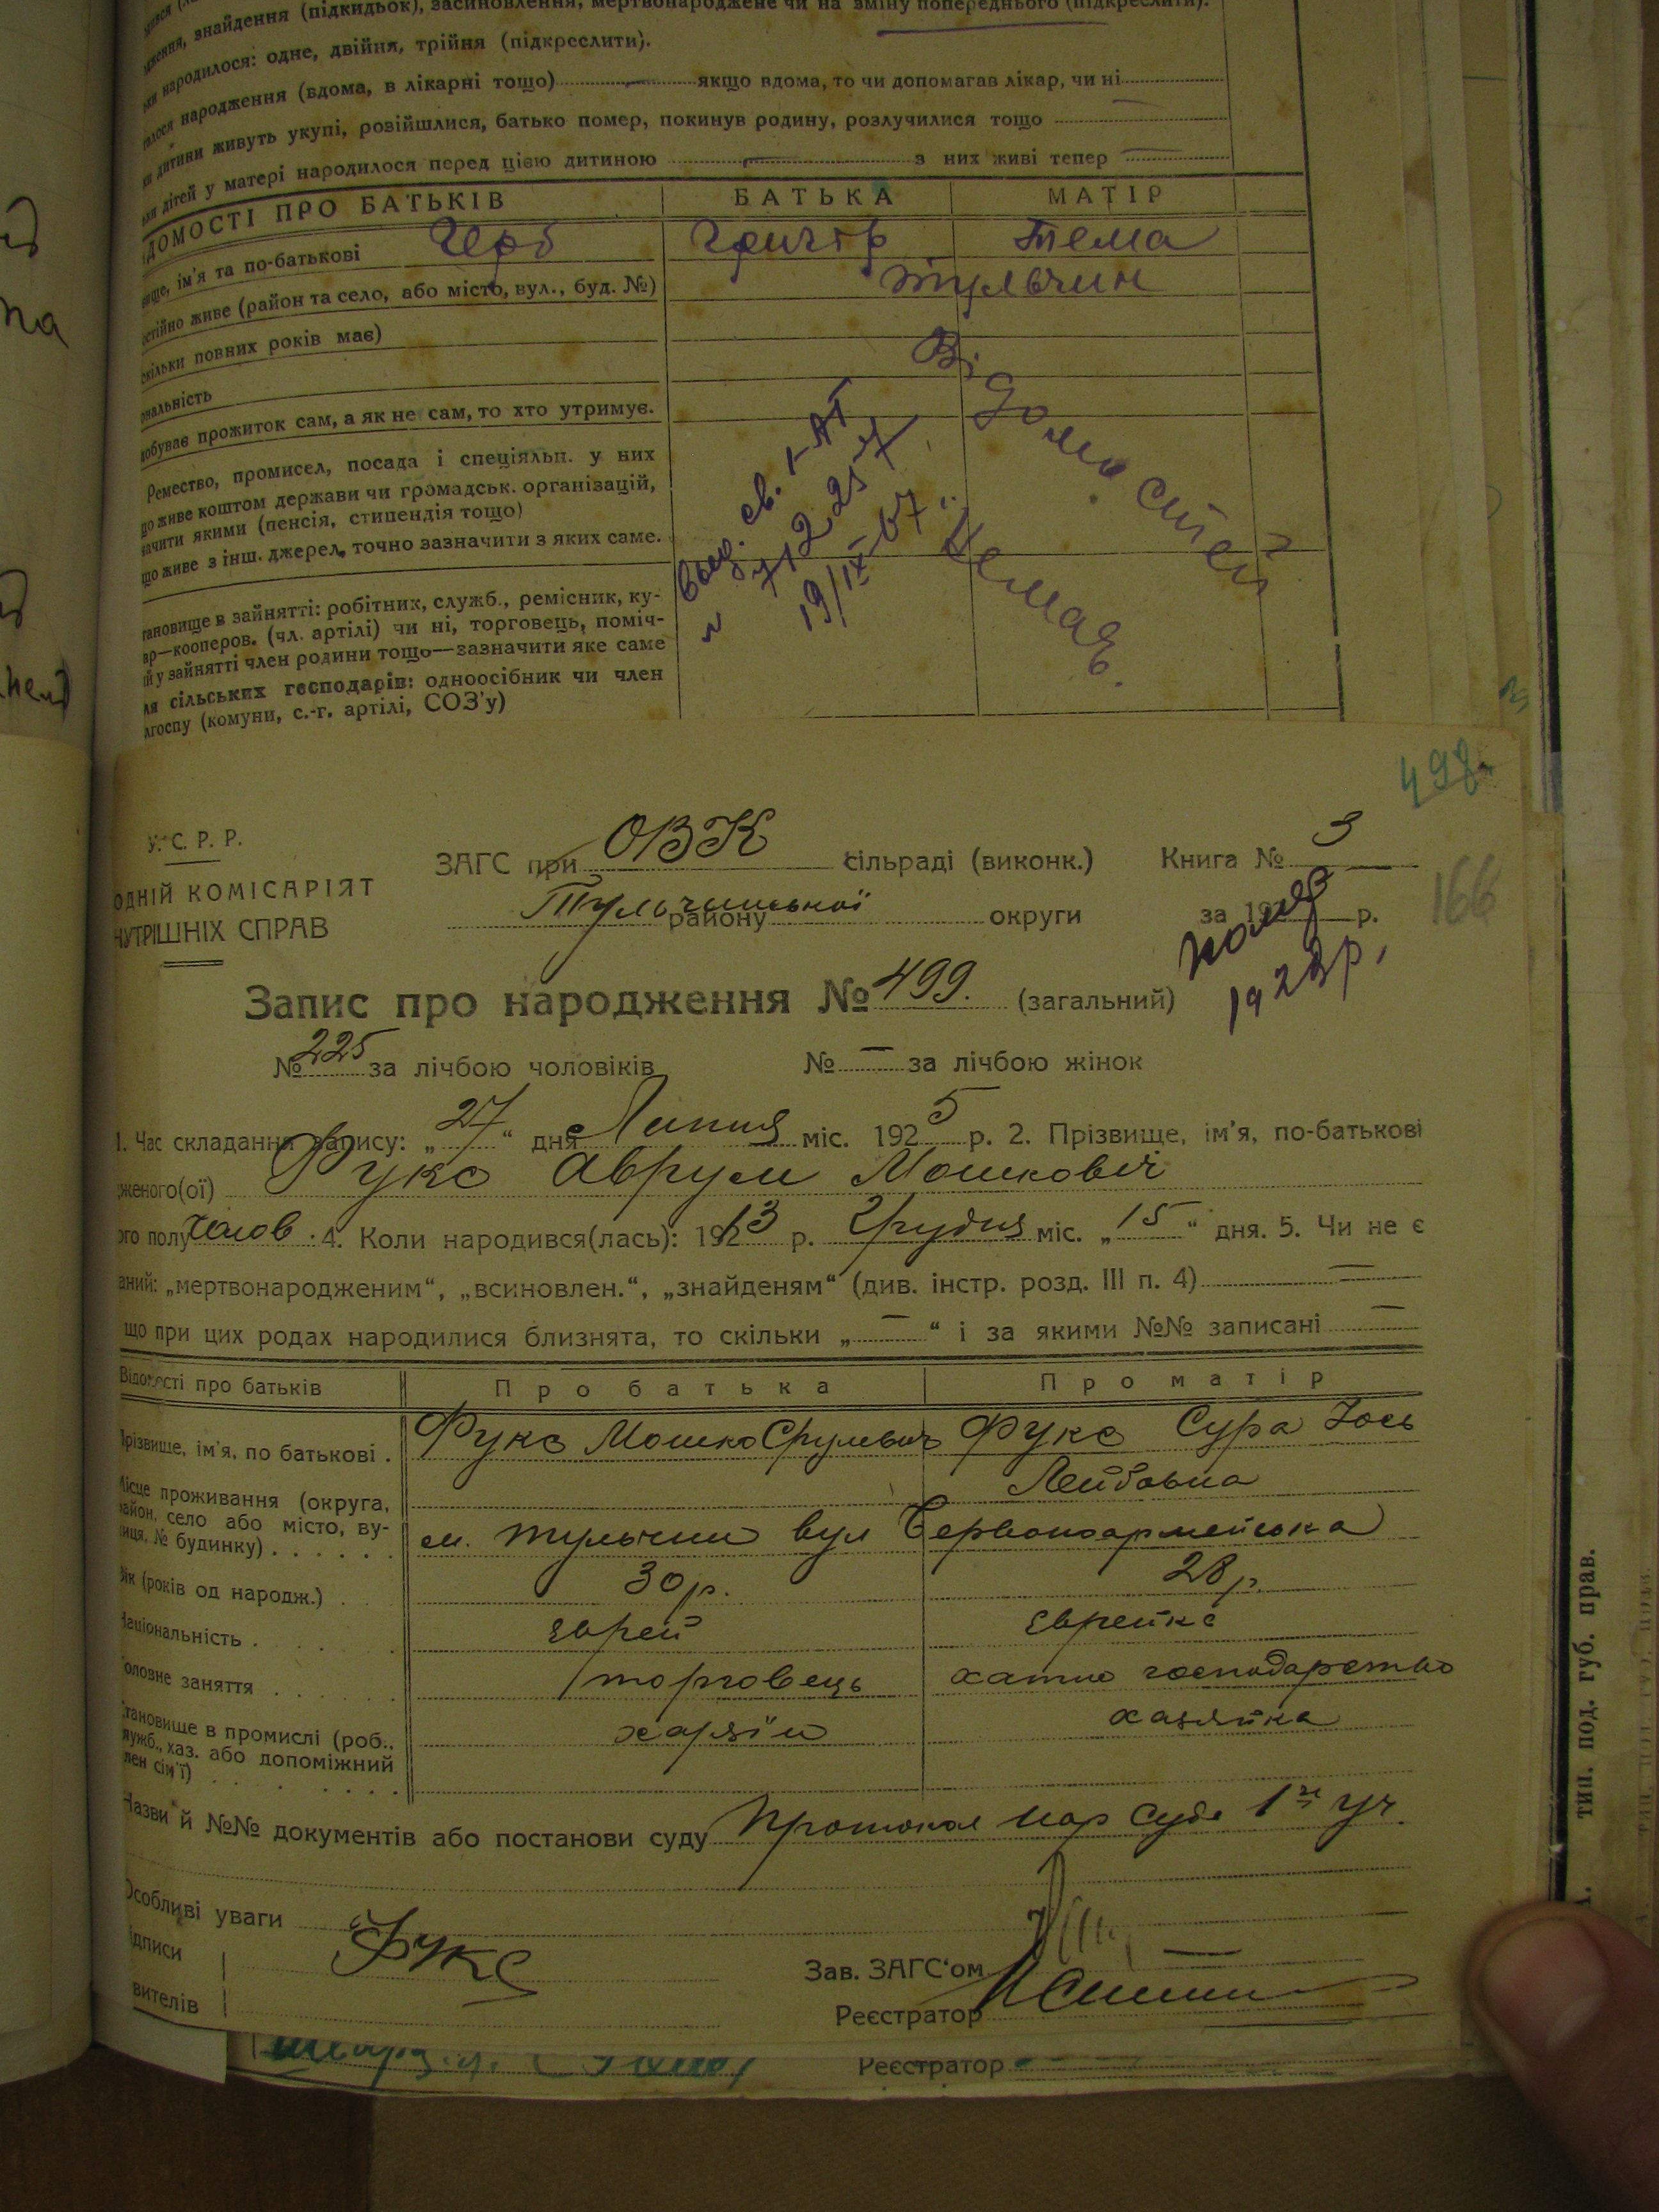 знайдення (підкидьок), засиновлення, мертвонароджене чи на зміну попереднього (підкреслити).
народилося: одне, двійня, трійня (підкреслити).
народження (вдома, в лікарні тощо) — якщо вдома, то чи допомагав лікар, чи ні —
дитини живуть укупі, розійшлися, батько помер, покинув родину, розлучилися тощо
дітей у матері народилося перед цією дитиною — з них живі тепер —
ДОМОСТІ ПРО БАТЬКІВ БАТЬКА МАТІР
ім'я та по-батькові Герб Григір Тема
живе (район та село, або місто, вул., буд. №) Тульчин
повних років має)
прожиток сам, а як не сам, то хто утримує.
Ремество, промисел, посада і спеціяльн. у них
живе коштом держави чи громадськ. організацій,
якими (пенсія, стипендія тощо)
живе з інш. джерел, точно зазначити з яких саме.
Відомостей
немаєъ.
19/IX-67
в зайнятті: робітник, служб., ремісник, ку-
ар—кооперов. (чл. артілі) чи ні, торговець, поміч-
у зайнятті член родини тощо—зазначити яке саме
ля сільських господарів: одноосібник чи член
(комуни, с.-г. артілі, СОЗ'у)
498
У. С. Р. Р.
ЗАГС при ОВК сільраді (виконк.) Книга № 3
ОДНІЙ КОМІСАРІЯТ
Тульчинської району округи за 192 р.
НУТРІШНІХ СПРАВ
166
1923р.
Запис про народження № 499. (загальний)
№ 225 за лічбою чоловіків № — за лічбою жінок
1. Час складання запису: „27“ дня Липня міс. 1925 р. 2. Прізвище, ім'я, по-батькові
женого(ої) Фукс Аврум Мошкович
ого полу челов. 4. Коли народився(лась): 1913 р. Грудня міс. „15“ дня. 5. Чи не є
аний: „мертвонародженим“, „всиновлен.“, „знайденям“ (див. інстр. розд. III п. 4) —
що при цих родах народилися близнята, то скільки „—“ і за якими №№ записані —
Відомості про батьків Про батька Про матір
Прізвище, ім'я, по батькові . Фукс Мошко Срулевич Фукс Сура Йось
Лейбовна
Місце проживання (округа,
район, село або місто, ву-
лиця, № будинку) . . . . . . м. Тульчин вул Червоноармейська
Вік (років од народж.) . 30р. 28р.
Національність . . . . еврей еврейка
Головне заняття . . . . . . торговець хатнє господарство
Становище в промислі (роб.,
служб., хаз. або допоміжний
член сім'ї) . . . . . . хазяїн хазяйка
Назви й №№ документів або постанови суду Протокол Нар Суда 1го уч.
Особливі уваги
ідписи Фукс Зав. ЗАГС'ом
вителів Реєстратор
Реєстратор
тип. под. губ. прав.